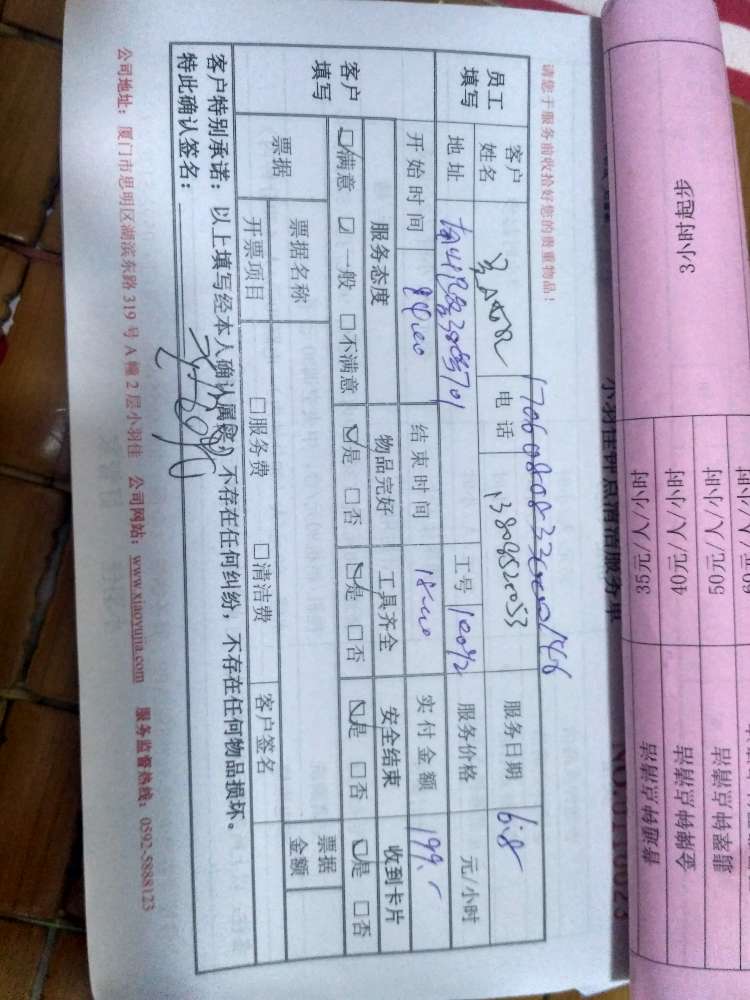 小羽佳钟点清洁服务单
3小时起步
60元/人/小时
50元/人/小时 熊猫钟点清洁
40元/人/小时 金牌钟点清洁
35元/人/小时 普通钟点清洁
请您于服务前收拾好您的贵重物品！
员工填写 客户姓名 电话 13808520053 服务日期 6.8
地址 工号 10092 服务价格 元/小时
开始时间 结束时间 18:00 实付金额 199.-
客户填写 服务态度 物品完好 工具齐全 安全结束 收到卡片
满意 一般 不满意 是 否 是 否 是 否 是 否
票据 票据名称 票据金额
开票项目 服务费 清洁费 客户签名
客户特别承诺：以上填写经本人确认属实，不存在任何纠纷，不存在任何物品损坏。
特此确认签名：
公司地址：厦门市思明区湖滨东路319号A幢2层小羽佳 公司网站：www.xiaoyujia.com 服务监督热线：0592-5888123